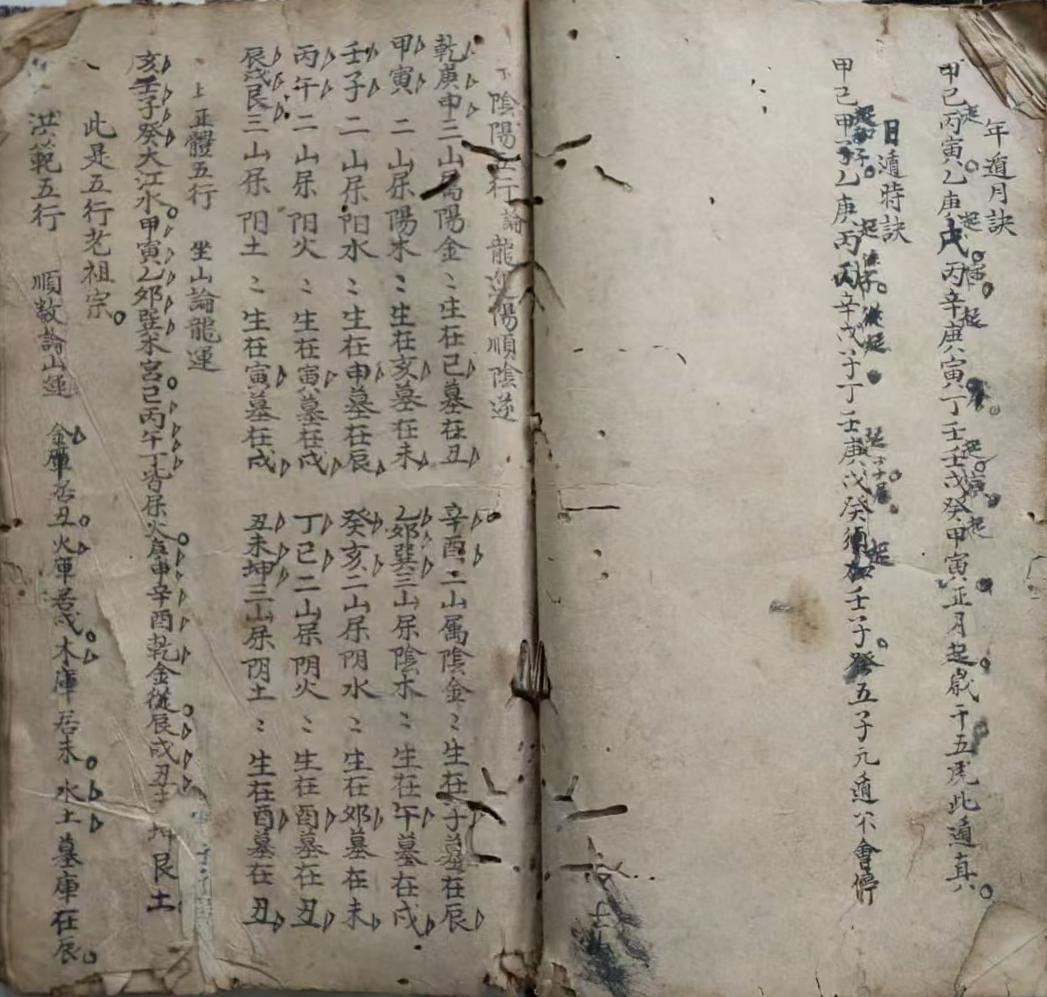 年遁月訣
甲己丙寅乙庚戊丙辛庚寅丁壬壬戊癸甲寅正月起歲干五虎此遁真
日遁時訣
甲己甲子乙庚丙丙辛戊子丁壬庚戊癸須在壬子癸五子元遁不會停
陰陽五行論龍
陽順陰逆
乾庚申三山属陽金〻生在巳墓在丑 辛酉二山属陰金〻生在子墓在辰
甲寅二山屌陽木〻生在亥墓在未 乙卯巽三山屌陰木〻生在午墓在戌
壬子二山屌阳水〻生在申墓在辰 癸亥二山屌阴水〻生在卯墓在未
丙午二山屌阳火〻生在寅墓在戌 丁巳二山屌阴火〻生在酉墓在丑
辰戌艮三山屌阳土〻生在寅墓在戌 丑未坤三山屌阴土〻生在酉墓在丑
上正體五行 坐山論龍運
亥壬子癸大江水甲寅乙卯巽木宮巳丙午丁皆屌火庚申辛酉乾金從辰戌丑未坤艮土
此是五行老祖宗
洪範五行 順数論山運 金庫居丑火庫居戌木庫居未水土墓庫在辰